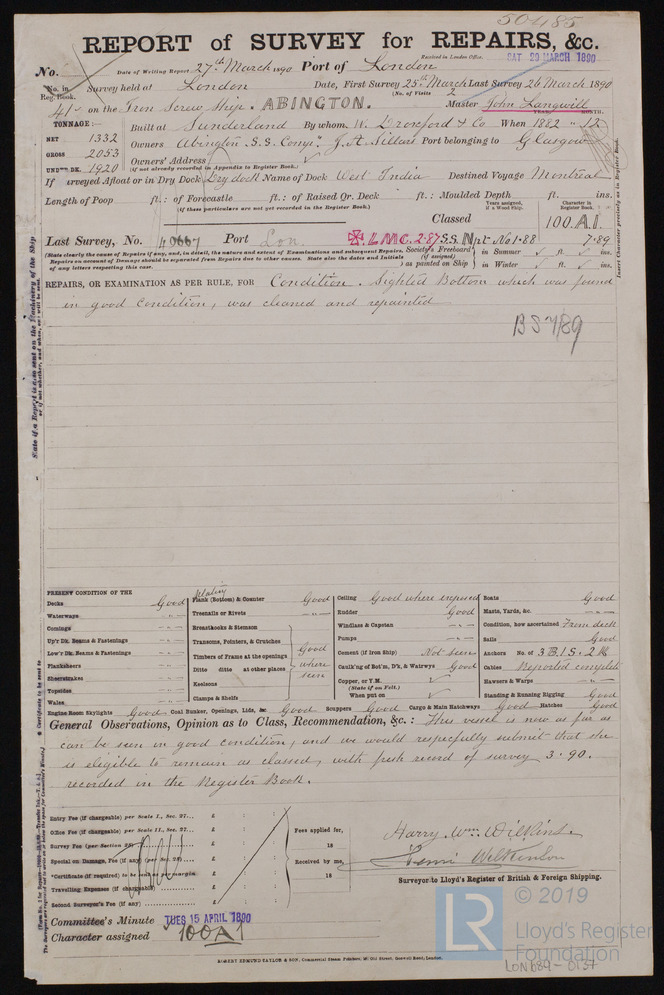 50485
REPORT of SURVEY for REPAIRS, &c.
Received in London Office. SAT 29 MARCH 1890
No. Date of Writing Report 27th March 1890 Port of London
No. in Reg. Book. Survey held at London Date, First Survey 25th March Last Survey 26 March 1890
(No. of Visits 2
41 on the Iron Screw Ship. ABINGTON. Master John Langwill
TONNAGE:— YEAR. MONTH.
NET 1332 Built at Sunderland By whom When 1882 " 12
GROSS 2053 Owners Abington S.S. Compy. J. A. Sillars Port belonging to Glasgow
UND'R DK. 1920 Owners' Address
(if not already recorded in Appendix to Register Book.)
If Surveyed Afloat or in Dry Dock Dry dock Name of Dock West India Destined Voyage Montreal
Length of Poop ft.: of Forecastle ft.: of Raised Qr. Deck ft.: Moulded Depth ft. ins.
(if these particulars are not yet recorded in the Register Book.)
Years assigned, if a Wood Ship. Character in Register Book.
Classed 100.A1.
Last Survey, No. 49667 Port Lon. L.M.C. 2.87 S.S. Npt. No 1.88 7.89
(State clearly the cause of Repairs if any, and, in detail, the nature and extent of Examinations and subsequent Repairs.
Repairs on account of Damage should be separated from Repairs due to other causes. State also the dates and Initials
of any letters respecting this case.
Society's Freeboard (if assigned) as painted on Ship in Summer ft. ins.
in Winter ft. ins.
REPAIRS, OR EXAMINATION AS PER RULE, FOR Condition. Sighted Bottom which was found
in good condition, was cleaned and repainted
BS 7/89
PRESENT CONDITION OF THE
Decks Good
Waterways
Comings
Up'r Dk. Beams & Fastenings
Low'r Dk. Beams & Fastenings
Planksheers
Sheerstrakes
Topsides
Wales
Engine Room Skylights Good
Plating
Plank (Bottom) & Counter Good
Treenails or Rivets
Breasthooks & Stemson
Transoms, Pointers, & Crutches
Timbers of Frame at the openings
Ditto ditto at other places
Keelsons
Clamps & Shelfs
Good where seen
Coal Bunker, Openings, Lids, &c. Good
Ceiling Good where exposed
Rudder Good
Windlass & Capstan
Pumps
Cement (if Iron Ship) Not seen
Caulk'ng of Bot'm, D'k, & Watrwys Good
Copper, or Y.M.
(State if on Felt.)
When put on
Scuppers Good Cargo & Main Hatchways Good Hatches Good
Boats Good
Masts, Yards, &c.
Condition, how ascertained From deck
Sails Good
Anchors No. of 3 B. 1 S. 2 K
Cables Reported complete
Hawsers & Warps
Standing & Running Rigging Good
General Observations, Opinion as to Class, Recommendation, &c.: This vessel is now as far as
can be seen in good condition, and we would respectfully submit that she
is eligible to remain as classed, with fresh record of survey 3.90.
recorded in the Register Book.
Entry Fee (if chargeable) per Scale I., Sec. 27... £ : :
Office Fee (if chargeable) per Scale II., Sec. 27... £ : :
Survey Fee (per Section 28) £ : :
Special or Damage, Fee (if any) (per Sec. 28) £ : :
Certificate (if required) to be sent as per margin £ : :
Travelling Expenses (if chargeable) £ : :
Second Surveyor's Fee (if any) £ : :
Fees applied for,
18
Received by me,
18
Harry Wm. Wilkins.
Wilkinson
Surveyor to Lloyd's Register of British & Foreign Shipping.
Committee's Minute TUES 15 APRIL 1890
Character assigned 100A1
ROBERT EDMUND TAYLOR & SON, Commercial Steam Printers, 19, Old Street, Goswell Road, London.
© 2019
LR Lloyd's Register
Foundation
LON689-0157
Insert Character precisely as in Register Book.